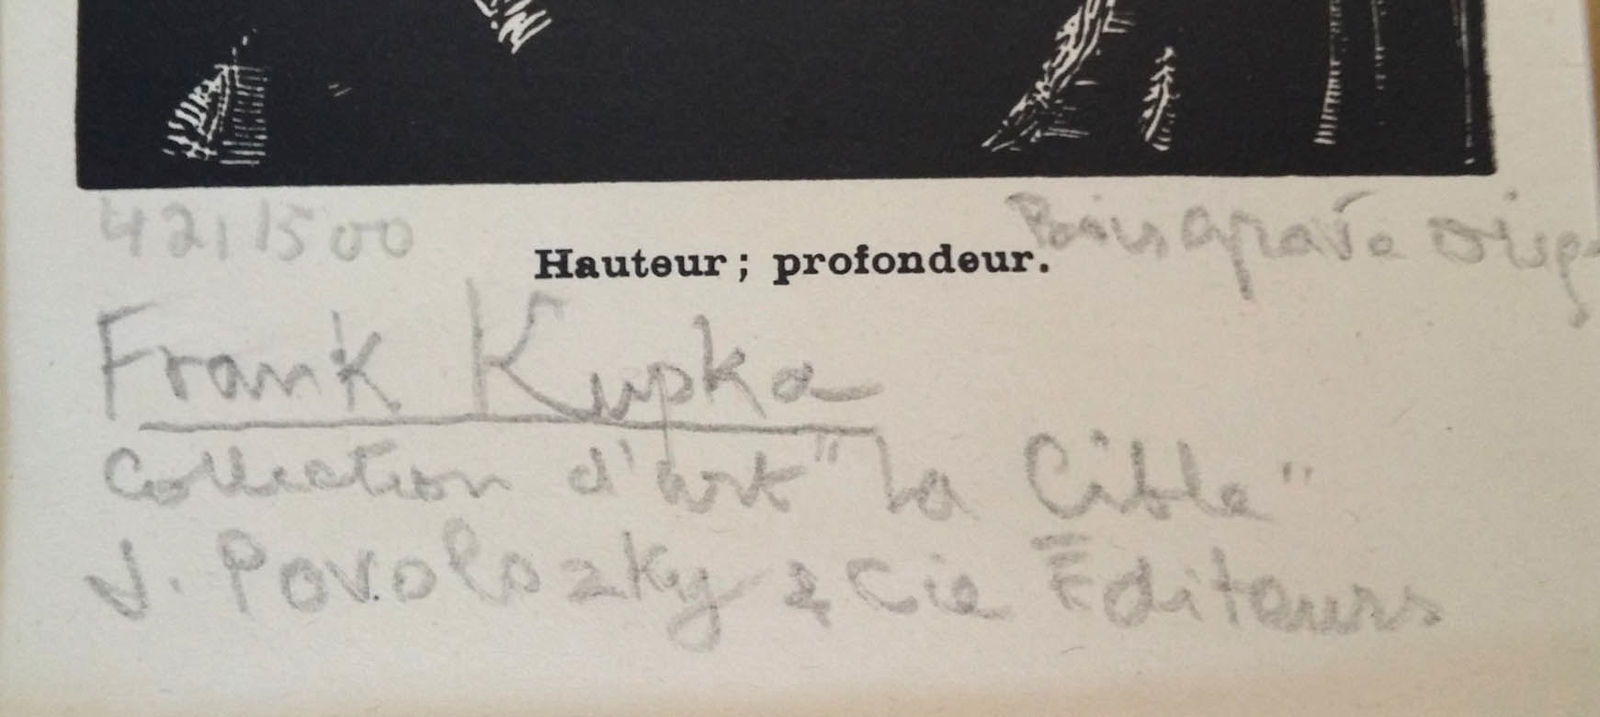 421/500
Hauteur ; profondeur.
Bois gravé orig
Frank Kupka
Collection d'art "La Cible"
J. Povolozky & Cie Éditeurs